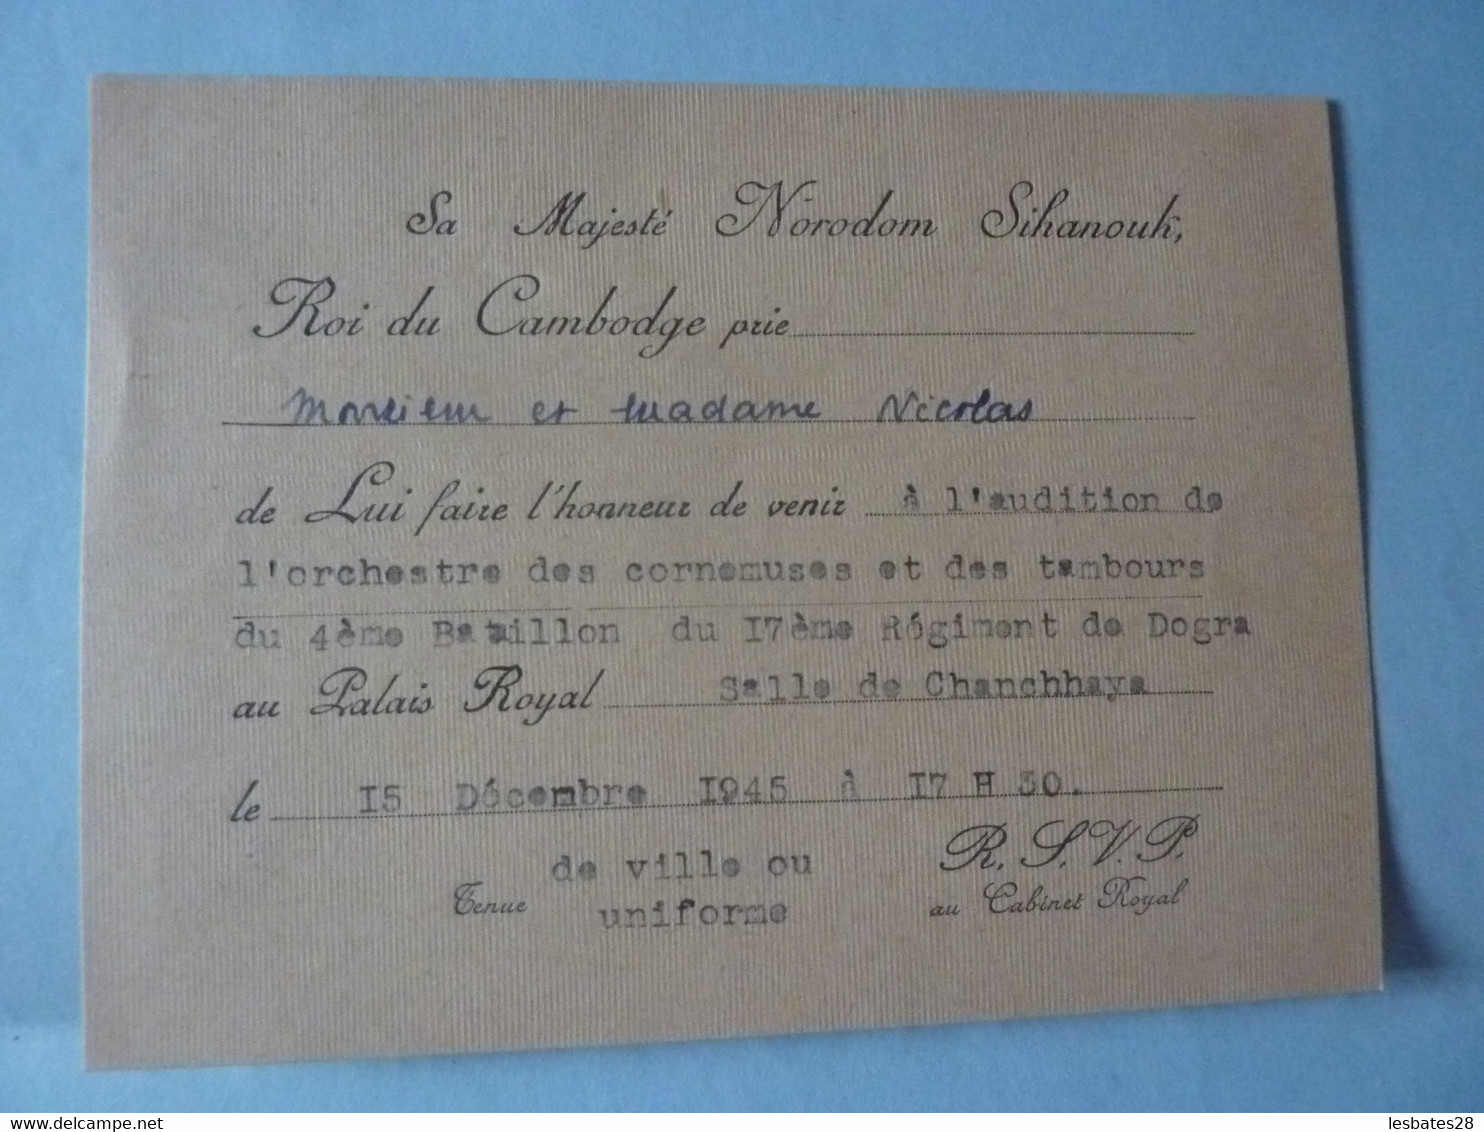 Sa Majesté Norodom Sihanouk,
Roi du Cambodge prie
Monsieur et Madame Nicolas
de Lui faire l'honneur de venir à l'audition de
l'orchestre des cornemuses et des tambours
du 4ème Bataillon du I7ème Régiment de Dogra
au Palais Royal Salle de Chanchhaya
le I5 Décembre I945 à I7 H 30.
de ville ou
Tenue uniforme
R. S. V. P.
au Cabinet Royal
delcampe.net
lesbates28